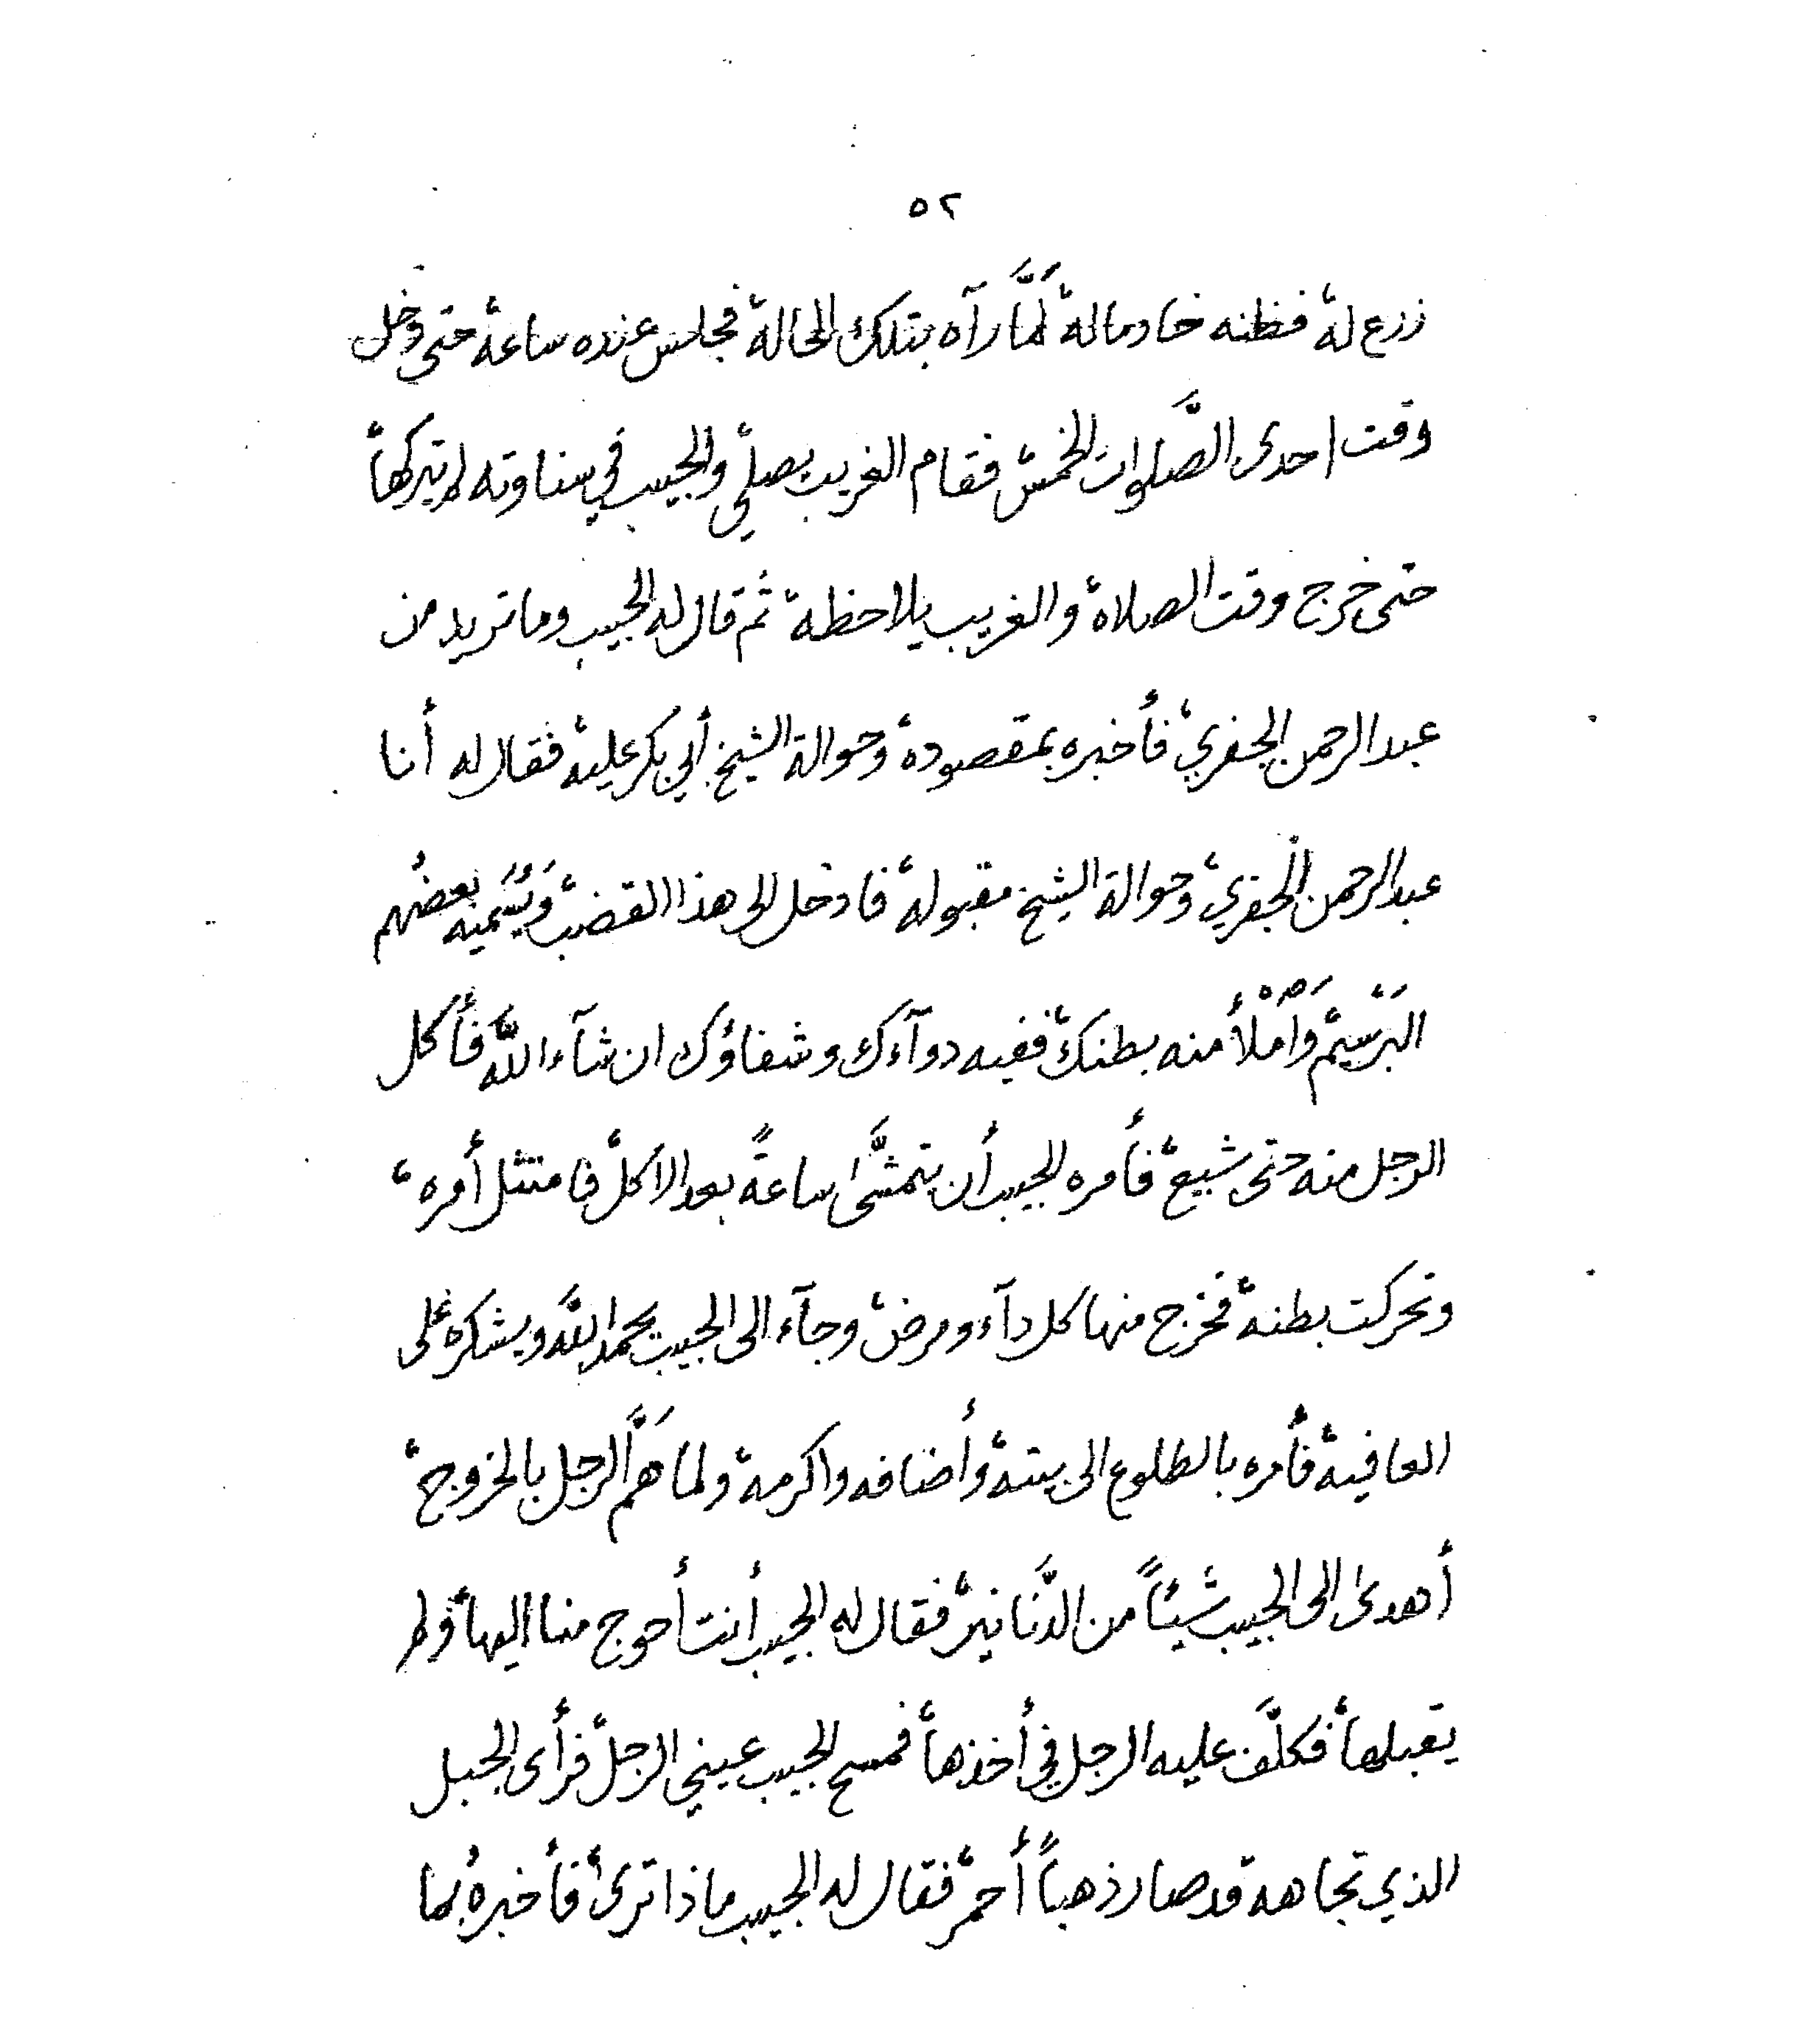 ٥٢
زرع له، فظنه خادما له، لَمَّا رآه بتلك الحالة، فجلس عنده ساعة، حتى دخل
وقت احدى الصَّلوات الخمس، فقام الغريب يصلي، والحبيب في سناوته لم يتركها،
حتى خرج وقت الصلاة، والغريب يلاحظه، ثم قال له الحبيب وما تريد من
عبد الرحمن الجفري، فأخبره بمقصوده، وحوالة الشيخ أبي بكر عليه، فقال له أنا
عبد الرحمن الجفري، وحوالة الشيخ مقبولة، فادخل الى هذا القضب، وَيُسَمِّيه بعضُهم
البَرْسِيم، وَامْلأ منه بطنك، ففيه دوآءك وشفاؤك ان شآء اللَّه، فأكل
الرجل منه حتى شبع، فأمره الحبيب أن يتمشَّى ساعةً بعد الاكل، فامتثل أمره،
وتحركت بطنه، فخرج منها كل دآء ومرض، وجآء الى الحبيب يحمد اللَّه ويشكره على
العافية، فأمره بالطلوع الى بيته، وأضافه واكرمه، ولما هَمَّ الرجل بالخروج،
أهدى الى الحبيب شيئاً من الدَّنانير، فقال له الحبيب أنت أحوج منا اليها، ولم
يقبلها، فكلَّف عليه الرجل في أخذها، فمسح الحبيب عيني الرجل، فرأى الجبل
الذي تجاهه قد صار ذهباً أحمر، فقال له الحبيب ماذا ترى، فأخبرهُ بما